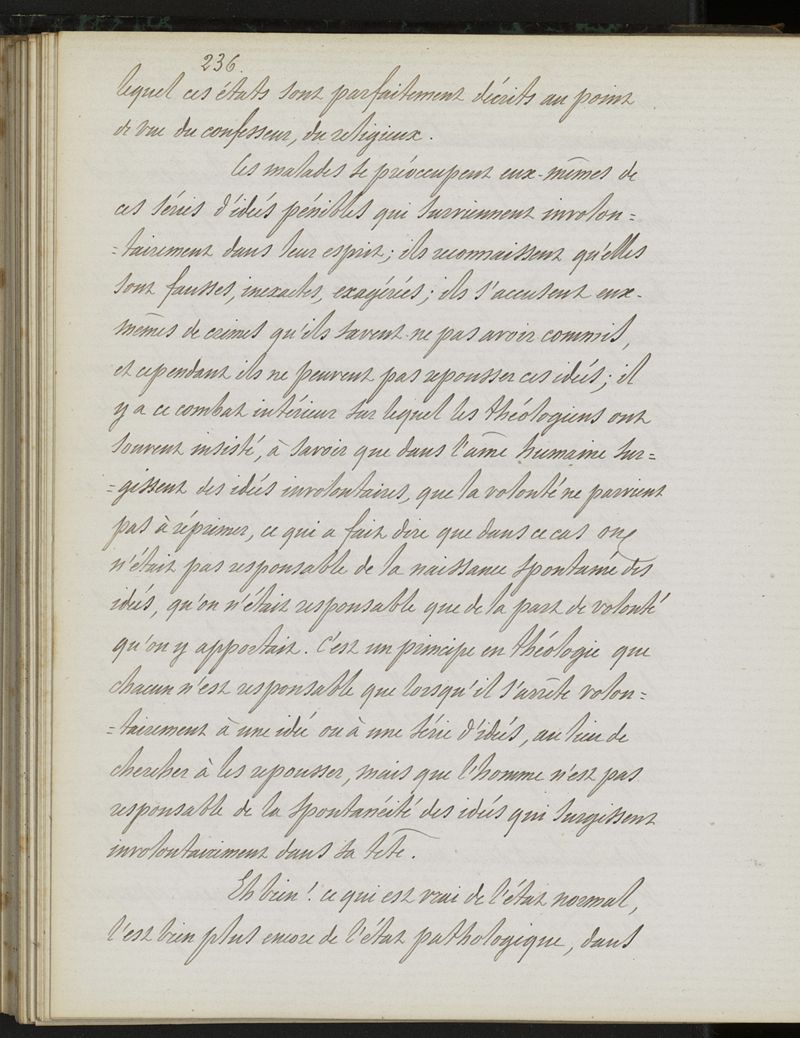 236.
lequel ces états sont parfaitement décrits au point
de vue du confesseur, du religieux.
Ces malades se préoccupent eux-mêmes de
ces séries d'idées pénibles qui surviennent involon=
=tairement dans leur esprit; ils reconnaissent qu'elles
sont fausses, inexactes, exagérées; ils s'accusent eux-
mêmes de crimes qu'ils savent ne pas avoir commis,
et cependant ils ne peuvent pas repousser ces idées; il
y a ce combat intérieur sur lequel les théologiens ont
souvent insisté, à savoir que dans l'âme humaine sur=
=gissent des idées involontaires, que la volonté ne parvient
pas à réprimer, ce qui a fait dire que dans ce cas on
n'était pas responsable de la naissance spontanée des
idées, qu'on n'était responsable que de la part de volonté
qu'on y apportait. C'est un principe en théologie que
chacun n'est responsable que lorsqu'il s'arrête volon=
=tairement à une idée ou à une série d'idées, au lieu de
chercher à les repousser, mais que l'homme n'est pas
responsable de la spontanéité des idées qui surgissent
involontairement dans sa tête.
Eh bien! ce qui est vrai de l'état normal,
l'est bien plus encore de l'état pathologique, dans